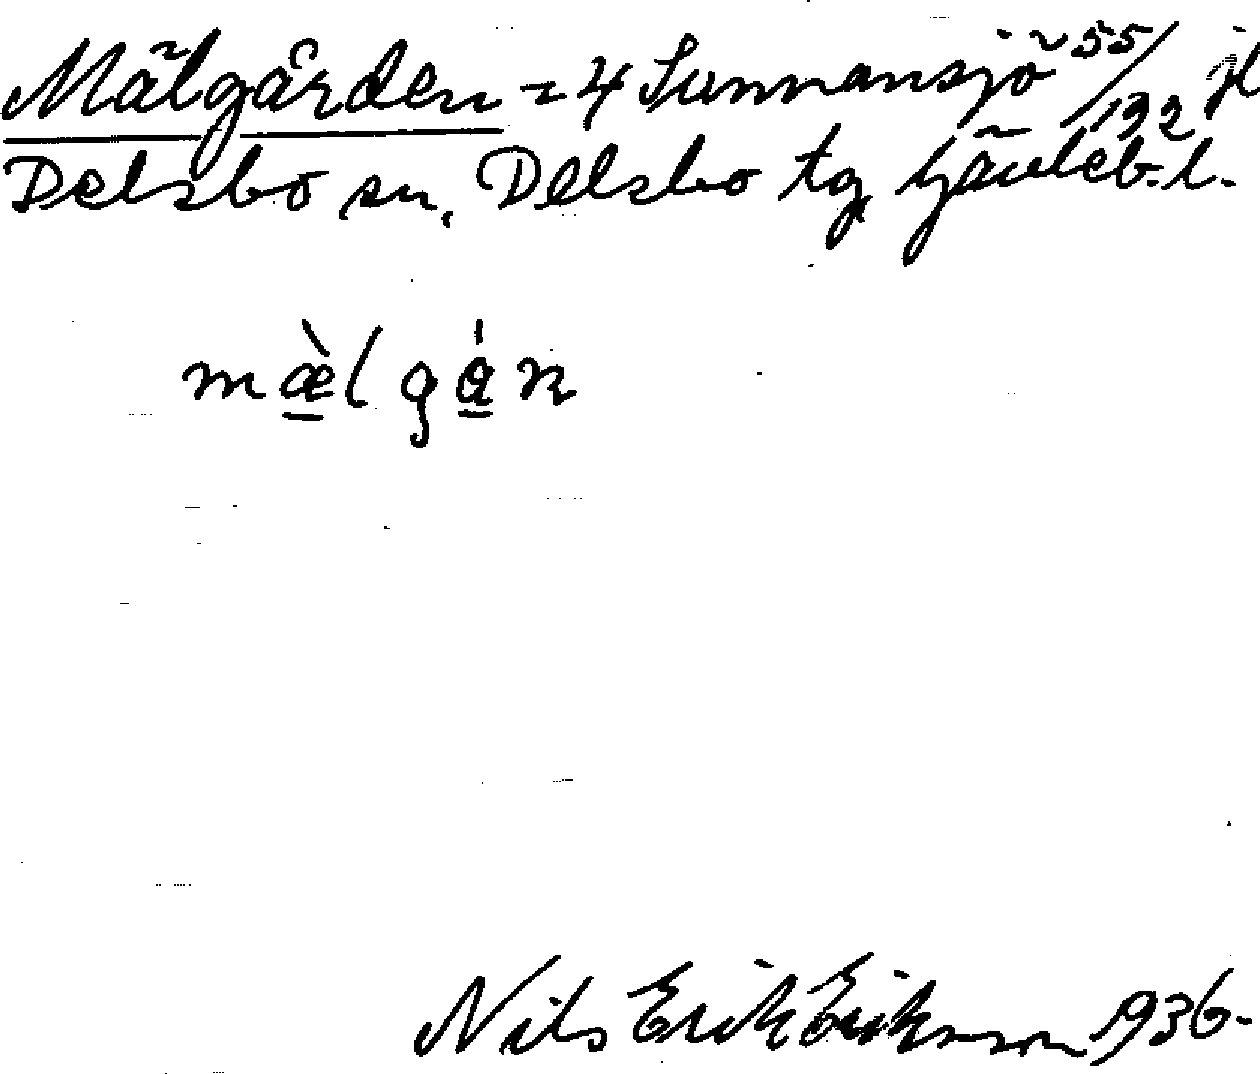 Mälgården = 4 Sunnansjö 55/192 jl
Delsbo sn, Delsbo tg Gävleb. l.
mæ̠̀lgá̠n
Nils Erik Erikson 1936.